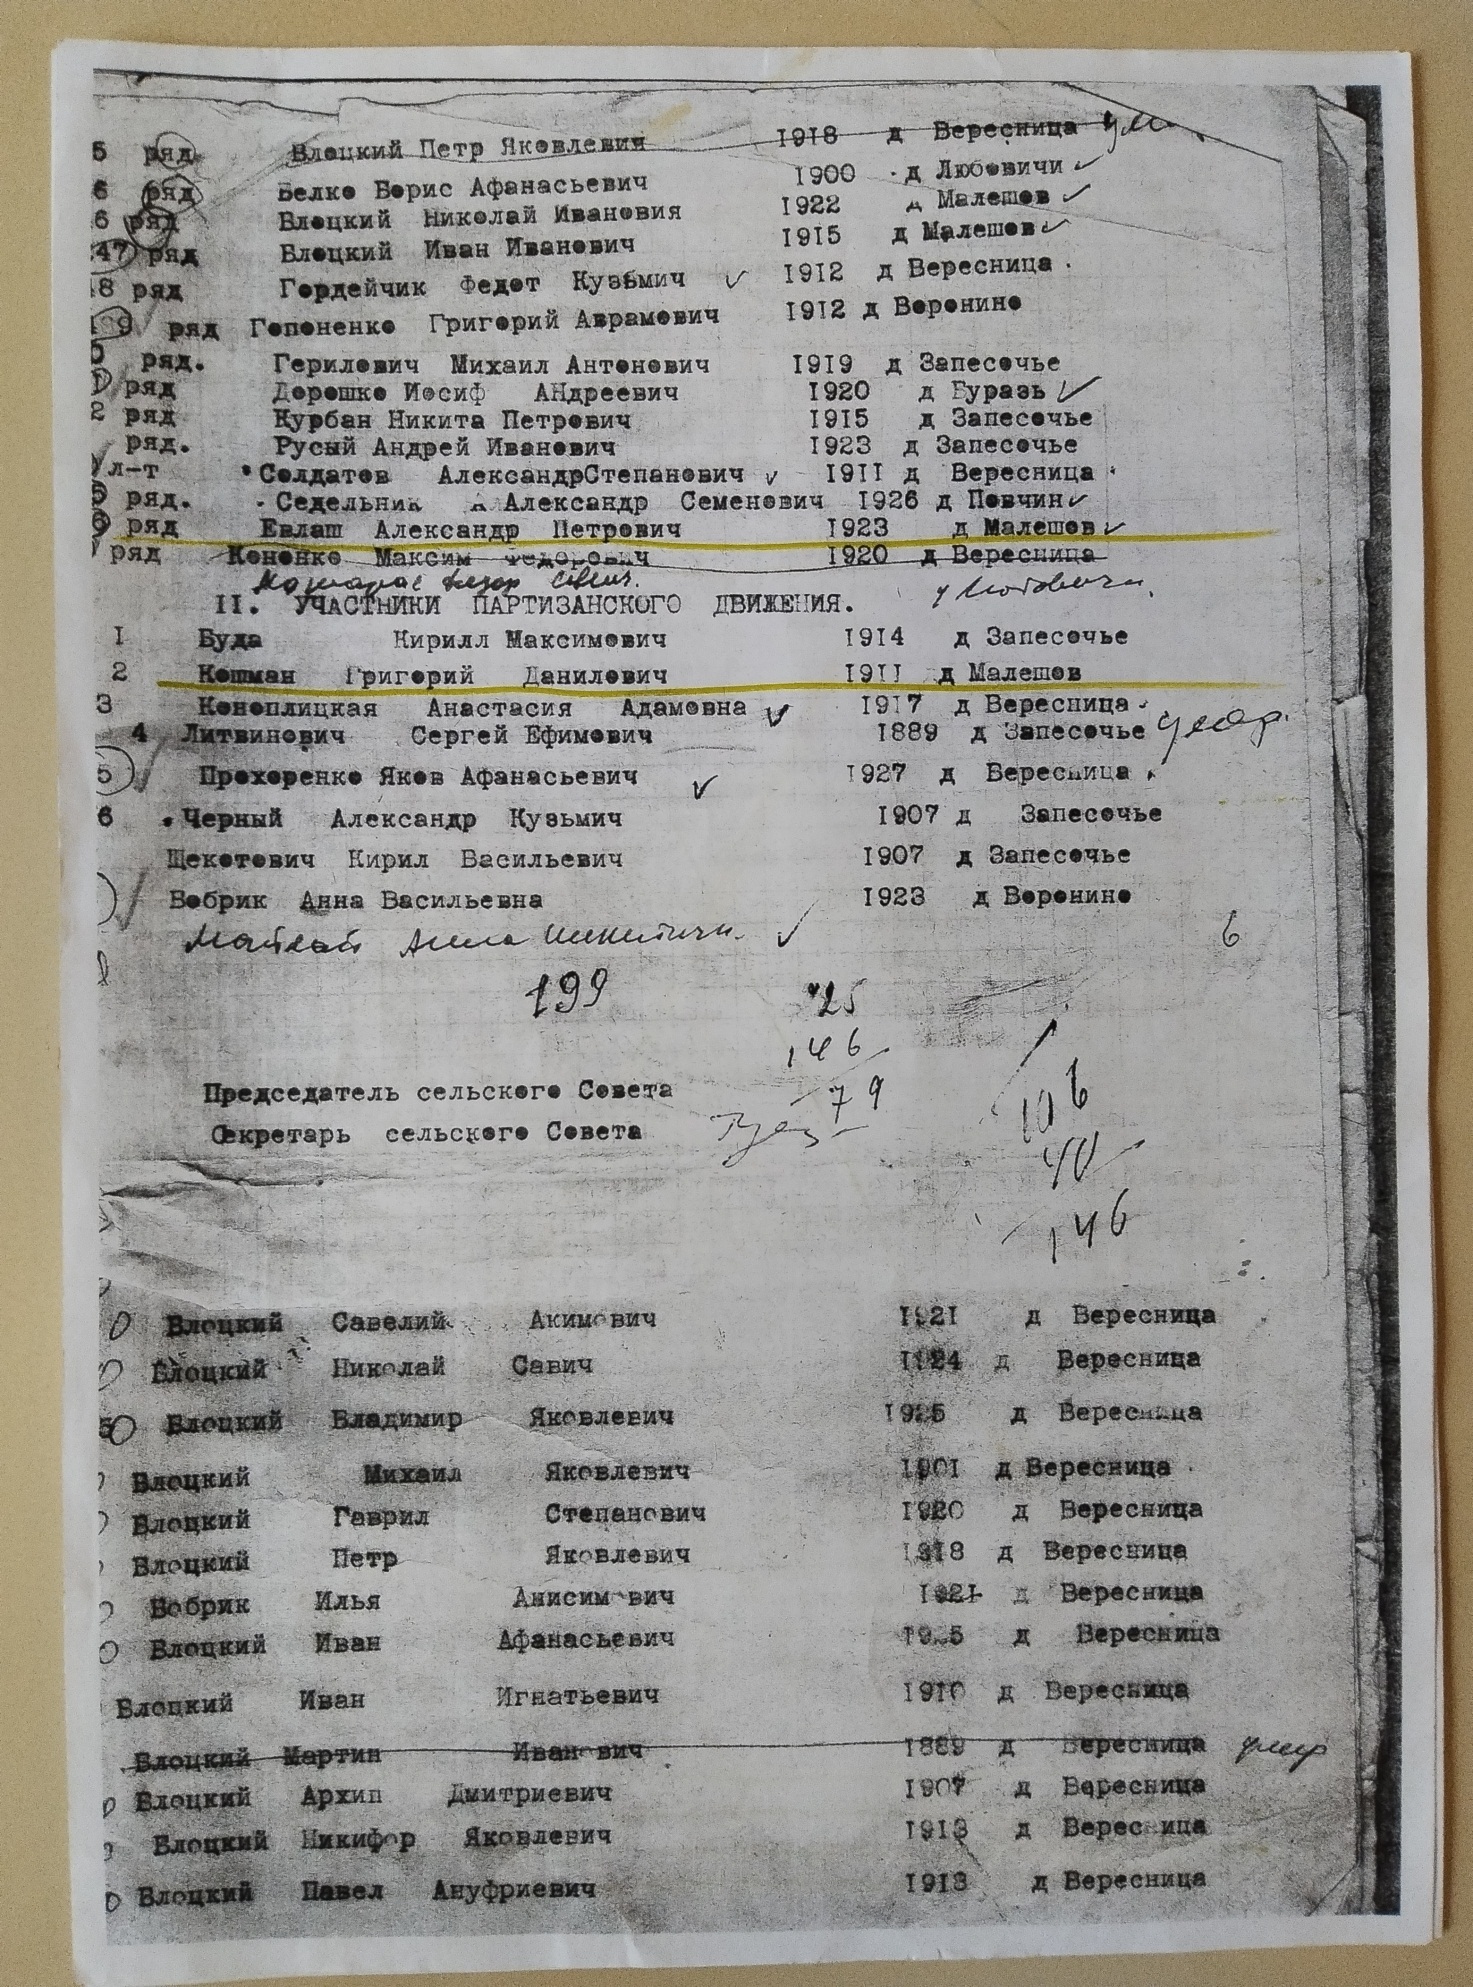 5 ряд Блоцкий Петр Яковлевич 1918 д Вересница
6 ряд Белко Борис Афанасьевич 1900 д Любовичи
6 ряд Блоцкий Николай Ивановия 1922 д Малешов
47 ряд Блоцкий Иван Иванович 1915 д Малешов
8 ряд Гордейчик Федот Кузьмич 1912 д Вересница
9 ряд Гопоненко Григорий Аврамович 1912 д Воронино
ряд. Герилович Михаил Антонович 1919 д Запесочье
ряд Дорошко Иосиф АНдреевич 1920 д Буразь
2 ряд Курбан Никита Петрович 1915 д Запесочье
ряд. Русый Андрей Иванович 1923 д Запесочье
л-т Солдатов АлександрСтепанович 1911 д Вересница
5 ряд. Седельник Александр Семенович 1926 д Повчин
6 ряд Евлаш Александр Петрович 1923 д Малешов
ряд Кононко Максим Федорович 1920 д Вересница
II. УЧАСТНИКИ ПАРТИЗАНСКОГО ДВИЖЕНИЯ.
1 Буда Кирилл Максимович 1914 д Запесочье
2 Кошман Григорий Данилович 1911 д Малешов
3 Коноплицкая Анастасия Адамовна 1917 д Вересница
4 Литвинович Сергей Ефимович 1889 д Запесочье
5 Прохоренко Яков Афанасьевич 1927 д Вересница
6 Черный Александр Кузьмич 1907 д Запесочье
Щекотович Кирил Васильевич 1907 д Запесочье
Бобрик Анна Васильевна 1923 д Воронино
6
199
146
79
Председатель сельского Совета
106
Секретарь сельского Совета
40
146
Блоцкий Савелий Акимович 1921 д Вересница
Блоцкий Николай Савич 1924 д Вересница
Блоцкий Владимир Яковлевич 1925 д Вересница
Блоцкий Михаил Яковлевич 1901 д Вересница
Блоцкий Гаврил Степанович 1920 д Вересница
Блоцкий Петр Яковлевич 1918 д Вересница
Бобрик Илья Анисимович 1921 д Вересница
Блоцкий Иван Афанасьевич д Вересница
Блоцкий Иван Игнатьевич 1910 д Вересница
Блоцкий Мартин Иванович 1889 д Вересница умер
Блоцкий Архип Дмитриевич 1907 д Вересница
Блоцкий Никифор Яковлевич 1913 д Вересница
Блоцкий Павел Ануфриевич 1913 д Вересница